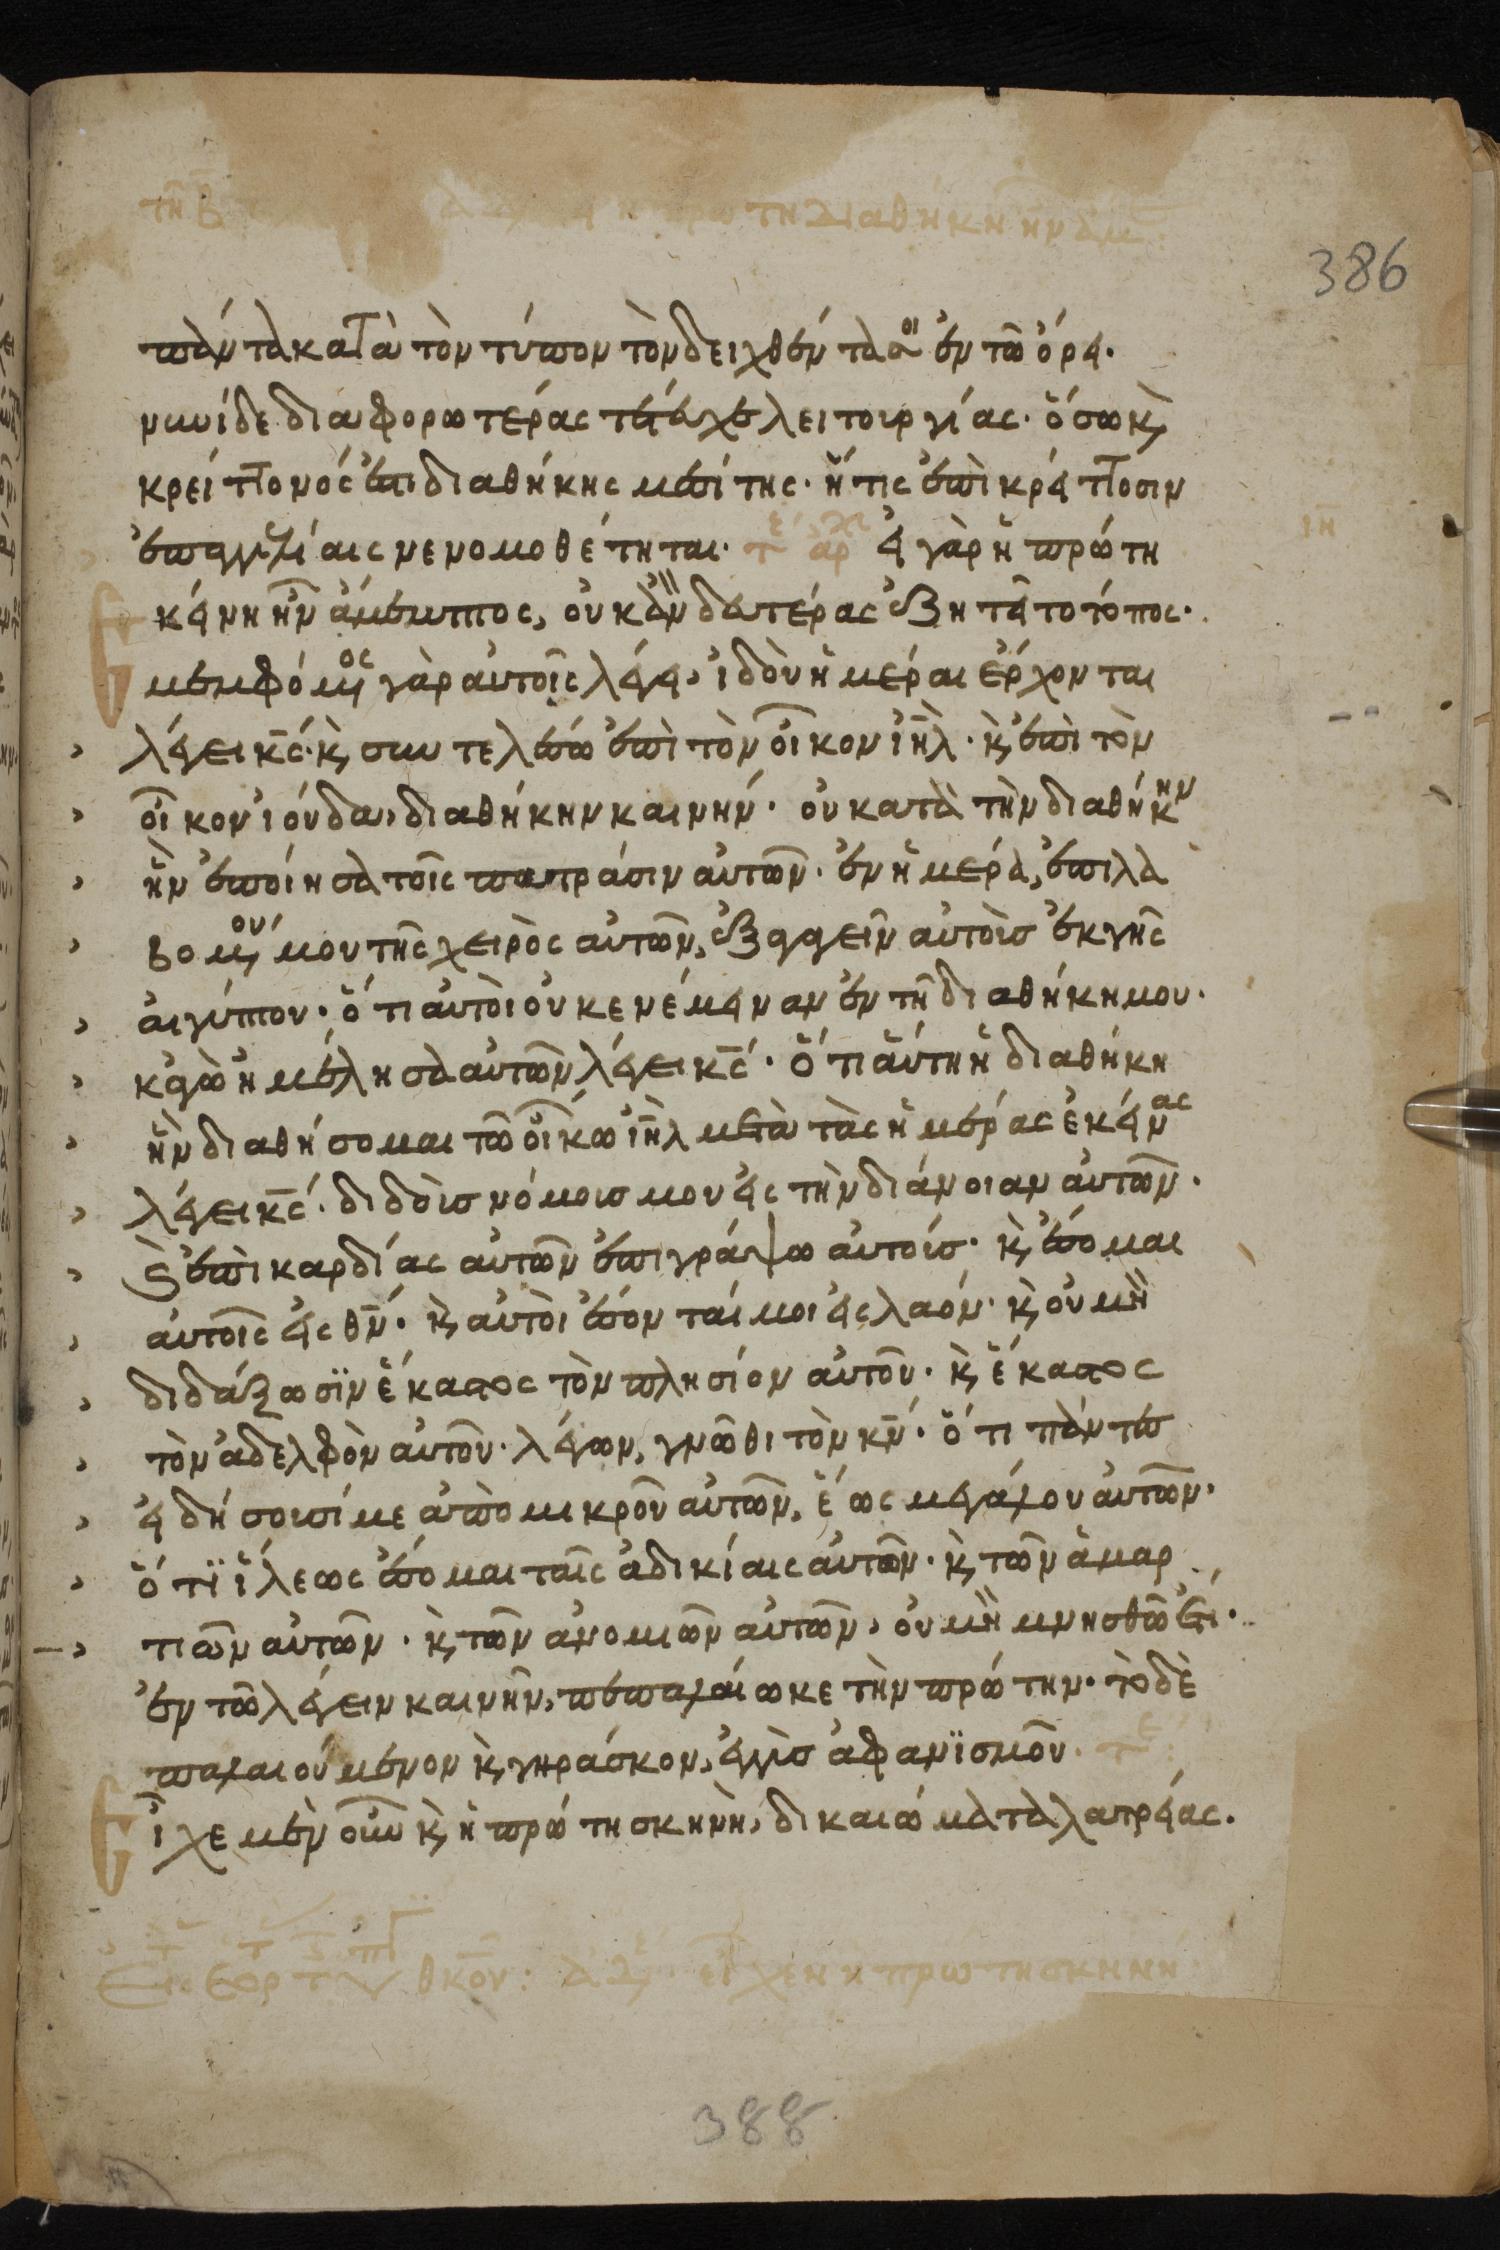 386
πάντα κατὰ τὸν τύπον τὸν δειχθέντα σοι ἐν τῶ ὄρει·
νυνὶ δὲ διαφορωτέρας τέτυχε λειτουργίας· ὅσω κ̀
κρείττονός ἐπι διαθήκης μεσίτης· ἥτις ἐπὶ κρείττοσιν
ἐπαγγελίαις νενομοθέτηται· εἰ γὰρ ἡ πρώτη
ἐκείνη ἦν ἄμεμπτος, οὐκ ἂν δευτέρας ἐζητεῖτο τόπος·
μεμφόμενος γὰρ αὐτοῖς λέγει, ἰδοὺ ἡμέραι ἔρχονται
λέγει κ̅ς̅· κ̀ συντελέσω ἐπὶ τὸν οἶκον ι̅η̅λ̅· κ̀ ἐπὶ τὸν
οἶκον ἰούδα, διαθήκην καινήν· οὐ κατὰ τὴν διαθήκην
ἣν ἐποίησα τοῖς πατράσιν αὐτῶν· ἐν ἡμέρα, ἐπιλα
βομένου μου τῆς χειρὸς αὐτῶν, ἐξαγαγεῖν αὐτοὺσ ἐκ γῆς
αἰγύπτου· ὅτι αὐτοὶ οὐκ ἐνέμειναν ἐν τῆ διαθήκη μου·
κἀγὼ ἠμέλησα αὐτῶν λέγει κ̅ς̅· ὅτι αὕτη ἡ διαθήκη
ἣν διαθήσομαι τῶ οἴκω ι̅η̅λ̅ μετὰ τὰς ἡμέρας ἐκείνας
λέγει κ̅ς̅· διδοὺσ νόμουσ μου εἰς τὴν διάνοιαν αὐτῶν·
κ̀ ἐπὶ καρδίας αὐτῶν ἐπιγράψω αὐτούσ· κ̀ ἔσομαι
αὐτοῖς εἰς θ̅ν̅· κ̀ αὐτοὶ ἔσονταί μοι εἰς λαόν· κ̀ οὐ μὴ
διδάξωσϊν ἕκαστος τὸν πλησίον αὐτοῦ· κ̀ ἕκαστος
τὸν ἀδελφὸν αὐτοῦ· λέγων, γνῶθι τὸν κ̅ν̅· ὅτι πάντες
εἰδήσουσί με ἀπὸ μικροῦ αὐτῶν, ἕως μεγάλου αὐτῶν·
ὅτϊ ἵλεως ἔσομαι ταῖς ἀδικίαις αὐτῶν· κ̀ τῶν ἁμαρ
τιῶν αὐτῶν· κ̀ τῶν ἀνομιῶν αὐτῶν, οὐ μὴ μνησθῶ ἔτι·
ἐν τῶ λέγειν καινὴν, πεπαλαίωκε τὴν πρώτην· τὸ δὲ
παλαιούμενον κ̀ γηράσκον, ἐγγὺσ ἀφανϊσμοῦ·
Εἶχε μὲν οὖν κ̀ ἡ πρώτη σκηνὴ, δικαιώματα λατρείας·
θκου: εἶχεν ἡ πρώτη σκηνή
388